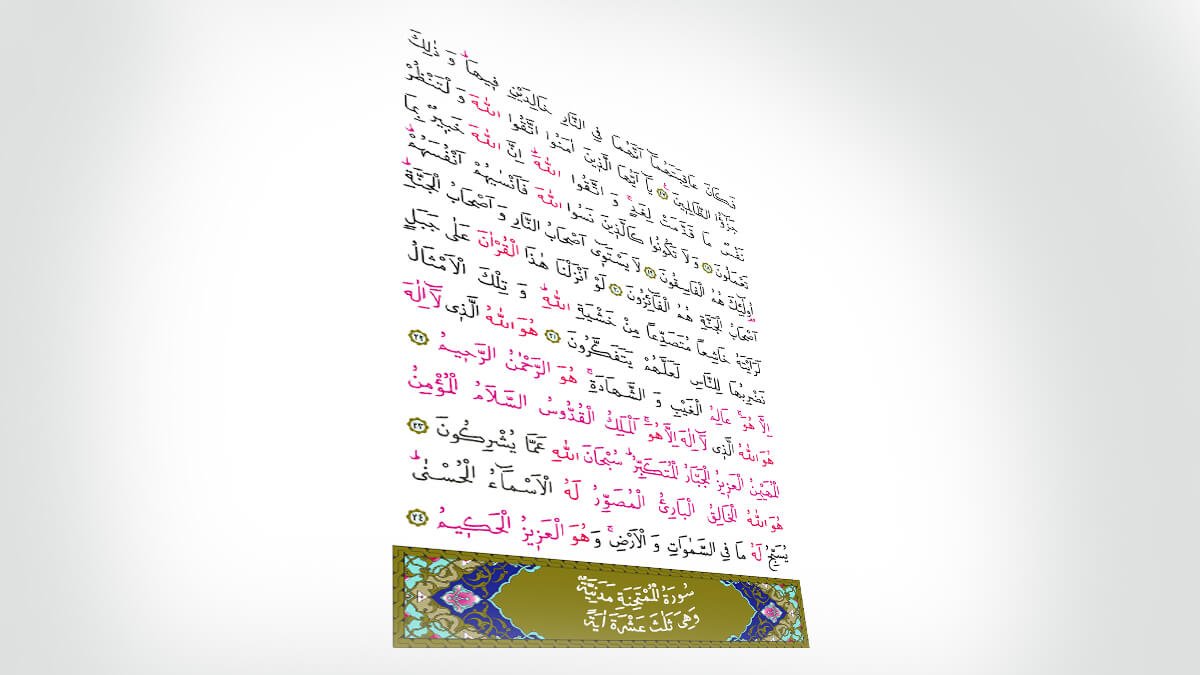 فَكَانَ عَاقِبَتَهُمَٓا اَنَّهُمَا فِي النَّارِ خَالِدَيْنِ فٖيهَاؕ وَ ذٰلِكَ
جَزٰٓؤُا الظَّالِمٖينَ ﴿١٧﴾ يَٓا اَيُّهَا الَّذٖينَ اٰمَنُوا اتَّقُوا اللّٰهَ وَ لْتَنْظُرْ
نَفْسٌ مَا قَدَّمَتْ لِغَدٍۚ وَ اتَّقُوا اللّٰهَؕ اِنَّ اللّٰهَ خَبٖيرٌ بِمَا
تَعْمَلُونَ ﴿١٨﴾ وَ لَا تَكُونُوا كَالَّذٖينَ نَسُوا اللّٰهَ فَاَنْسٰيهُمْ اَنْفُسَهُمْؕ
اُو۬لٰٓئِكَ هُمُ الْفَاسِقُونَ ﴿١٩﴾ لَا يَسْتَوٖٓي اَصْحَابُ النَّارِ وَ اَصْحَابُ الْجَنَّةِؕ
اَصْحَابُ الْجَنَّةِ هُمُ الْفَٓائِزُونَ ﴿٢٠﴾ لَوْ اَنْزَلْنَا هٰذَا الْقُرْاٰنَ عَلٰى جَبَلٍ
لَرَاَيْتَهُ خَاشِعًا مُتَصَدِّعًا مِنْ خَشْيَةِ اللّٰهِؕ وَ تِلْكَ الْاَمْثَالُ
نَضْرِبُهَا لِلنَّاسِ لَعَلَّهُمْ يَتَفَكَّرُونَ ﴿٢١﴾ هُوَ اللّٰهُ الَّذٖي لَٓا اِلٰهَ
اِلَّا هُوَۚ عَالِمُ الْغَيْبِ وَ الشَّهَادَةِۚ هُوَ الرَّحْمٰنُ الرَّحٖيمُ ﴿٢٢﴾
هُوَ اللّٰهُ الَّذٖي لَٓا اِلٰهَ اِلَّا هُوَۚ اَلْمَلِكُ الْقُدُّوسُ السَّلَامُ الْمُؤْمِنُ
الْمُهَيْمِنُ الْعَزٖيزُ الْجَبَّارُ الْمُتَكَبِّرُؕ سُبْحَانَ اللّٰهِ عَمَّا يُشْرِكُونَ ﴿٢٣﴾
هُوَ اللّٰهُ الْخَالِقُ الْبَارِئُ الْمُصَوِّرُ لَهُ الْاَسْمَٓاءُ الْحُسْنٰىؕ
يُسَبِّحُ لَهُ مَا فِي السَّمٰوَاتِ وَ الْاَرْضِۚ وَ هُوَ الْعَزٖيزُ الْحَكٖيمُ ﴿٢٤﴾
سُورَةُ الْمُمْتَحِنَةِ مَدَنِيَّةٌ
وَهِيَ ثَلٰثَ عَشْرَةَ اٰيَةً